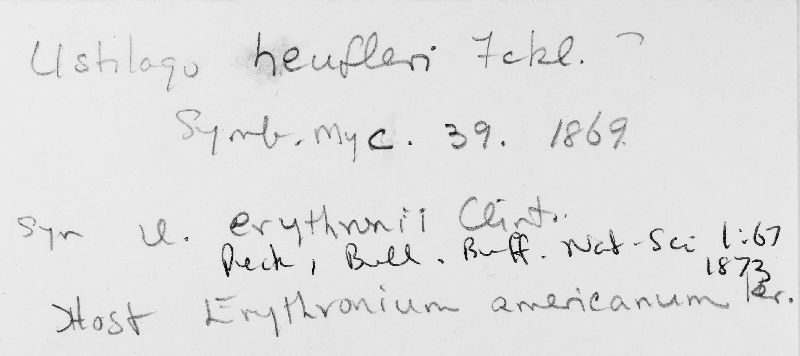 Ustilago heufleri Fckl.
Symb. Myc. 39. 1869
Syn U. erythronii Clint.
Peck, Bull. Buff. Nat. Sci 1:67
1873
Host Erythronium americanum Ker.